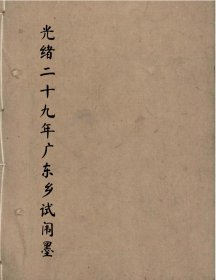 光绪二十九年广东乡试闱墨